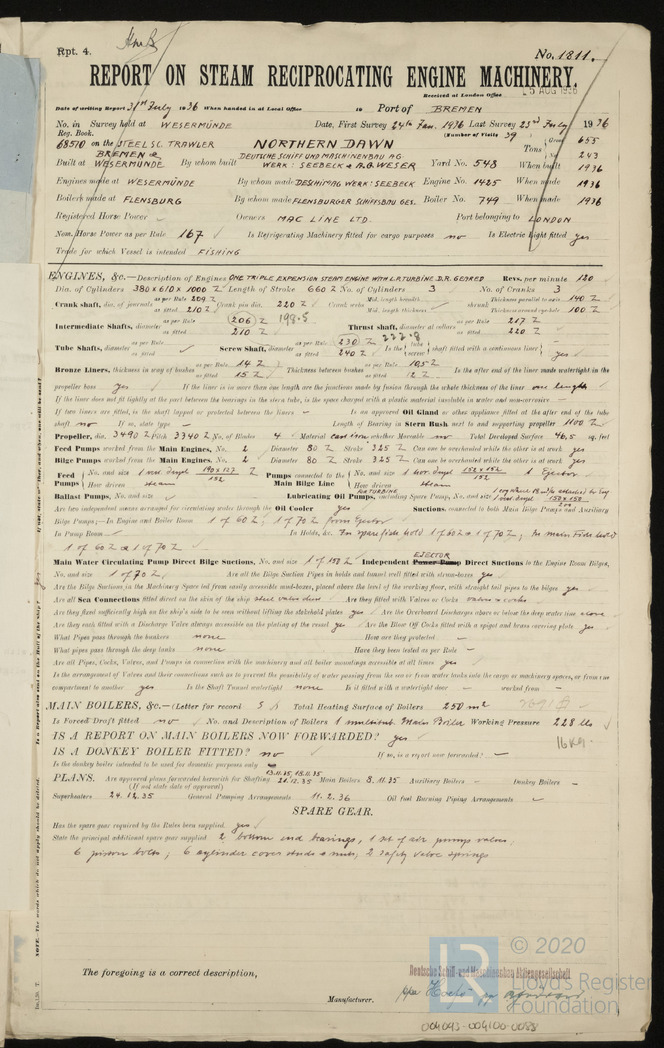 Rpt. 4.
No. 1811.
REPORT ON STEAM RECIPROCATING ENGINE MACHINERY.
Received at London Office
5 AUG 1936
Date of writing Report 31st July 1936 When handed in at Local Office 19 Port of BREMEN
No. in Survey held at WESERMÜNDE Date, First Survey 24th Jan. 1936 Last Survey 23rd July 1936
Reg. Book. (Number of Visits 39
68570 on the STEEL SC. TRAWLER NORTHERN DAWN Tons Gross 655 Net 243
Built at BREMEN & WESERMÜNDE By whom built DEUTSCHE SCHIFF UND MASCHINENBAU AG. WERK: SEEBECK & A.G. WESER Yard No. 548 When built 1936
Engines made at WESERMÜNDE By whom made DESCHIMAG WERK: SEEBECK Engine No. 1425 When made 1936
Boilers made at FLENSBURG By whom made FLENSBURGER SCHIFFSBAU GES. Boiler No. 749 When made 1936
Registered Horse Power Owners MAC LINE LTD. Port belonging to LONDON
Nom. Horse Power as per Rule 167 Is Refrigerating Machinery fitted for cargo purposes no Is Electric Light fitted yes
Trade for which Vessel is intended FISHING
ENGINES, &c.—Description of Engines ONE TRIPLE EXPENSION STEAM ENGINE WITH L.P. TURBINE D.R. GEARED Revs. per minute 120
Dia. of Cylinders 380 x 610 x 1000 Length of Stroke 660 No. of Cylinders 3 No. of Cranks 3
Crank shaft, dia. of journals as per Rule 209 as fitted 210 Crank pin dia. 220 Crank webs Mid. length breadth Mid. length thickness shrunk Thickness parallel to axis 140 Thickness around eye-hole 100
Intermediate Shafts, diameter as per Rule 206 198.5 as fitted 210 Thrust shaft, diameter at collars as per Rule 217 as fitted 220
Tube Shafts, diameter as per Rule as fitted Screw Shaft, diameter as per Rule 230 222.8 as fitted 240 Is the tube screw shaft fitted with a continuous liner yes
Bronze Liners, thickness in way of bushes as per Rule 14 as fitted 15 Thickness between bushes as per Rule 10,5 as fitted 12 Is the after end of the liner made watertight in the
propeller boss yes If the liner is in more than one length are the junctions made by fusion through the whole thickness of the liner one length
If the liner does not fit tightly at the part between the bearings in the stern tube, is the space charged with a plastic material insoluble in water and non-corrosive —
If two liners are fitted, is the shaft lapped or protected between the liners — Is an approved Oil Gland or other appliance fitted at the after end of the tube
shaft no If so, state type — Length of Bearing in Stern Bush next to and supporting propeller 1100
Propeller, dia. 3490 Pitch 3340 No. of Blades 4 Material cast iron whether Moveable no Total Developed Surface 46,5 sq. feet
Feed Pumps worked from the Main Engines, No. 2 Diameter 80 Stroke 325 Can one be overhauled while the other is at work yes
Bilge Pumps worked from the Main Engines, No. 2 Diameter 80 Stroke 325 Can one be overhauled while the other is at work yes
Feed Pumps No. and size How driven steam Pumps connected to the Main Bilge Line No. and size 1 Ejector How driven steam
Ballast Pumps, No. and size Lubricating Oil Pumps, including Spare Pump, No. and size
Are two independent means arranged for circulating water through the Oil Cooler yes Suctions, connected to both Main Bilge Pumps and Auxiliary
Bilge Pumps;—In Engine and Boiler Room 1 of 60; 1 of 70 from Ejector
In Pump Room In Holds, &c.
1 of 60 & 1 of 70
Main Water Circulating Pump Direct Bilge Suctions, No. and size Independent Power Pump EJECTOR Direct Suctions to the Engine Room Bilges,
No. and size 1 of 70 Are all the Bilge Suction Pipes in holds and tunnel well fitted with strum-boxes yes
Are the Bilge Suctions in the Machinery Space led from easily accessible mud-boxes, placed above the level of the working floor, with straight tail pipes to the bilges yes
Are all Sea Connections fitted direct on the skin of the ship Are they fitted with Valves or Cocks valves & cocks
Are they fixed sufficiently high on the ship's side to be seen without lifting the stokehold plates yes Are the Overboard Discharges above or below the deep water line above
Are they each fitted with a Discharge Valve always accessible on the plating of the vessel yes Are the Blow Off Cocks fitted with a spigot and brass covering plate yes
What Pipes pass through the bunkers none How are they protected —
What pipes pass through the deep tanks none Have they been tested as per Rule —
Are all Pipes, Cocks, Valves, and Pumps in connection with the machinery and all boiler mountings accessible at all times yes
Is the arrangement of Valves and their connections such as to prevent the possibility of water passing from the sea or from water tanks into the cargo or machinery spaces, or from one
compartment to another yes Is the Shaft Tunnel watertight none Is it fitted with a watertight door — worked from —
MAIN BOILERS, &c.—(Letter for record S) Total Heating Surface of Boilers 250 m²
Is Forced Draft fitted no No. and Description of Boilers 1 multitub. Main Boiler Working Pressure 228 lbs
IS A REPORT ON MAIN BOILERS NOW FORWARDED? yes 16 Kg.
IS A DONKEY BOILER FITTED? no If so, is a report now forwarded? —
Is the donkey boiler intended to be used for domestic purposes only
PLANS. Are approved plans forwarded herewith for Shafting 13.11.35, 18.11.35 21.12.35 Main Boilers 8.11.35 Auxiliary Boilers - Donkey Boilers -
(If not state date of approval)
Superheaters 24.12.35 General Pumping Arrangements 11.2.36 Oil fuel Burning Piping Arrangements —
SPARE GEAR.
Has the spare gear required by the Rules been supplied yes
State the principal additional spare gear supplied 2 bottom end bearings, 1 set of air pump valves,
6 piston bolts, 6 cylinder cover studs & nuts, 2 safety valve springs
The foregoing is a correct description,
Deutsche Schiff- und Maschinenbau Aktiengesellschaft
Manufacturer.
© 2020
LR
Lloyd's Register
Foundation
004093-004100-0088